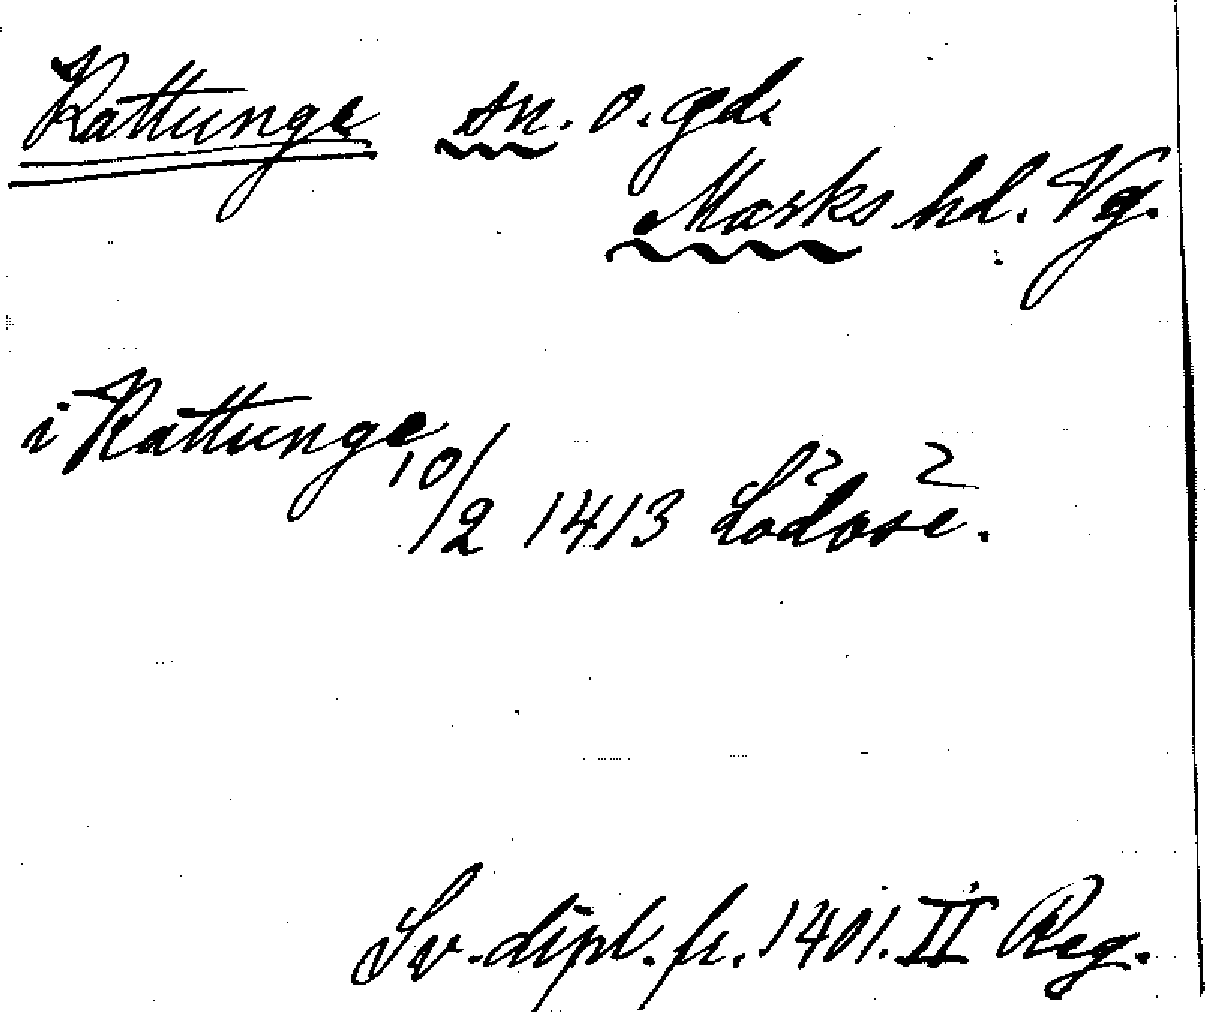 Kattunge sn. o. gd.
Marks hd. Vg.
i Kattunge
10/2 1413 Lödöse.
Sv. dipl. fr. 1401. II Reg.